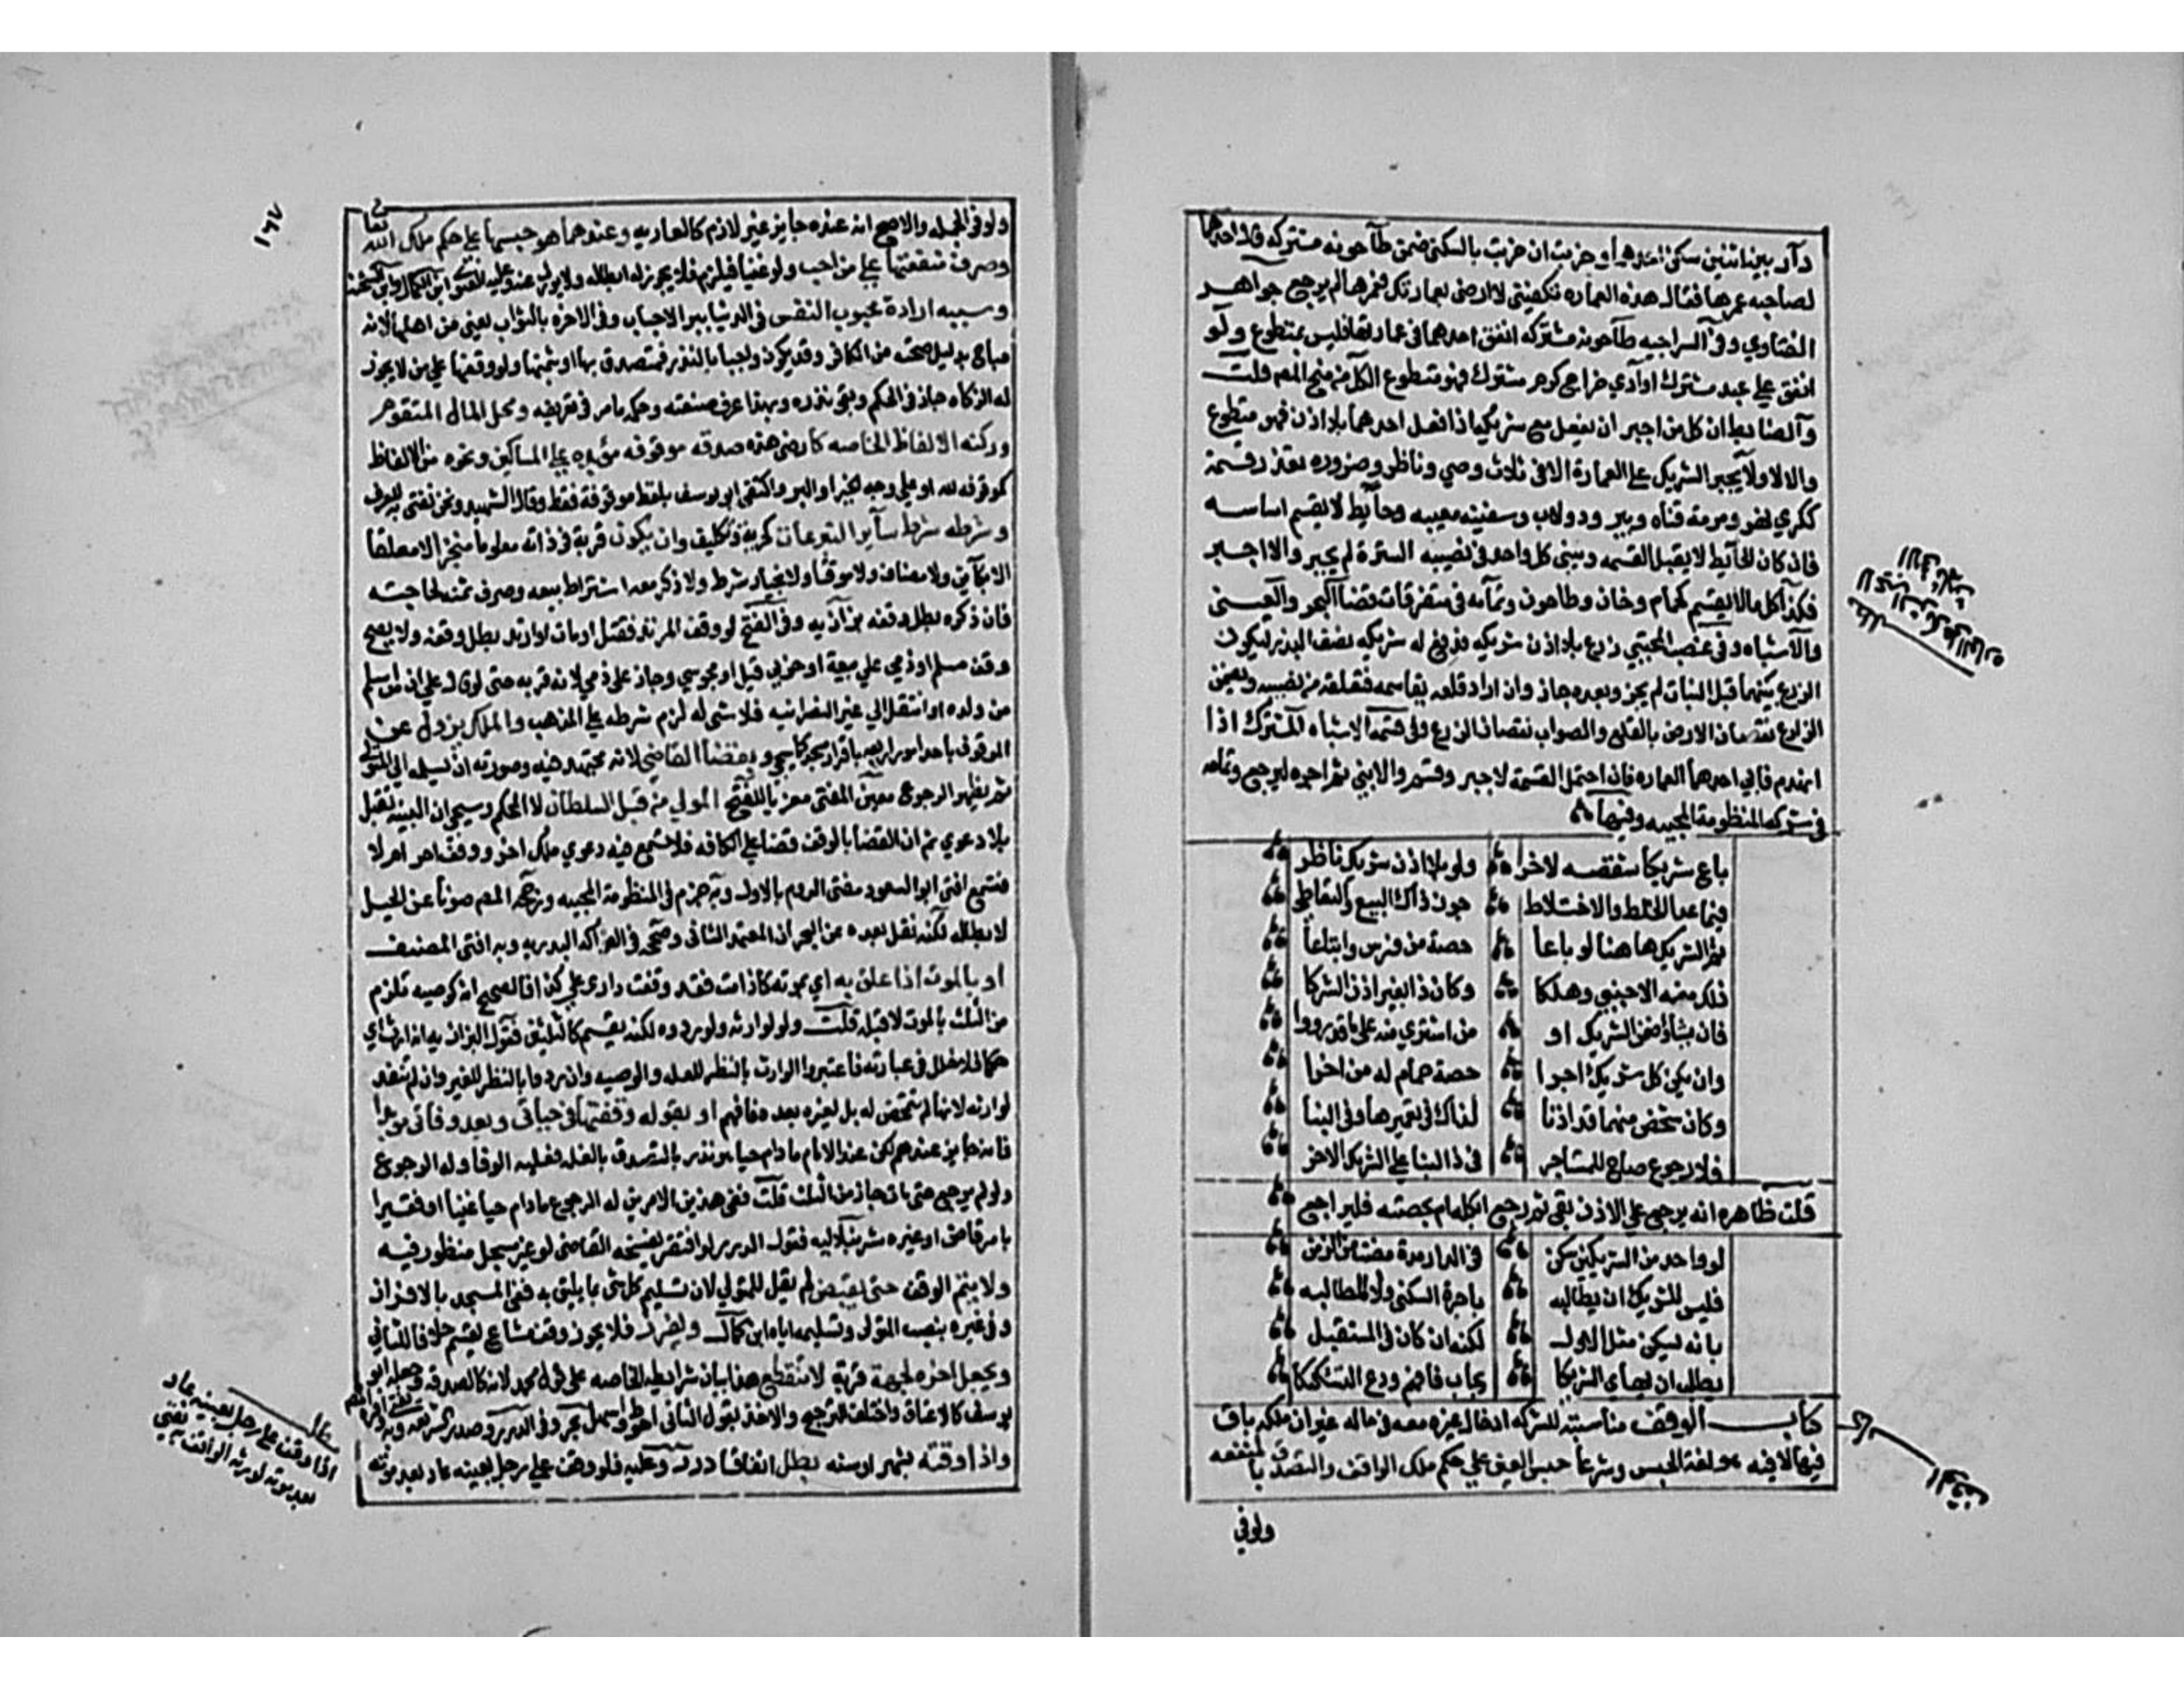 دار بين اثنين سكن احدهما وخربت ان خربت بالسكنى ضمن طاحونه مشتركه قال احدهما
لصاحبه عمرها فقال هذه العماره تكفيني لا ارضى بعمارتك فعمرها لم يرجع جواهر
الفتاوي وفي السراجيه طاحونه مشتركه انفق احدهما في عمارتها فليس بمتطوع ولو
انفق علي عبد مشترك او ادي خراج كرم مشترك فهو متطوع الكل من منح المص قلت
والضابط ان كل من اجبر ان يفعل مع شريكه اذا فعل احدهما بلا اذن فهو متطوع
والا لا ولا يجبر الشريك على العمارة الا في ثلاث وصي وناظر وضروره تعذر قسمة
ككري نهر ومرمة قناه وبير ودولاب وسفينه معيبه وحايط لا يقسم اساسه
فان كان الحايط لا يقبل القسمه ويبني كل واحد في نصيبه السترة لم يجبر والا اجبر
فكذا كل ما لا يقسم كحمام وخان وطاحون وتمامه في متفرقات قضا البحر والعيني
والاشباه وفي غصب المجتبي زرع بلا اذن شريكه فدفع له شريكه نصف البذر ليكون
الزرع بينهما قبل النبات لم يجز وبعده جاز وان اراد قلعه يقاسمه فيقلعه من نصيبه ويضمن
الزارع نقصان الارض بالقلع والصواب نقصان الزرع وفي قسمة الاشباه المشترك اذا
انهدم فابي احدهما العماره فان احتمل القسمة لا جبر وقسم والا بني ثم اجره ليرجع وتمامه
في شركه المنظومة المحبيه وفيها
باع شريك شقصه لاخر ولو بلا اذن شريك ناظر
فيما عدا الخلط والاختلاط جوز ذاك البيع والتعاطي
ثم الشريك هاهنا لو باعا حصة من فرس وابتاعا
ذلك منه الاجنبي وهلكا وكان ذا بغير اذن الشركا
فان يشاؤا ضمنوا الشريك او من اشتري منه على ما قد رووا
وان يكن كل شريك اجرا حصة حمام له من اخرا
وكان شخص منهما قد اذنا لذاك في تعميرها وفي البنا
فلا رجوع صاح للمستاجر في ذا البنا على الشريك الاخر
قلت ظاهره انه يرجع علي الاذن بقي ثم يرجع ابكله ام بحصته فليراجع
لو واحد من الشريكين سكن في الدار مدة مضت من الزمن
فليس للشريك ان يطالبه باجرة السكنى ولا المطالبه
بانه يسكن مثل الاول لكنه ان كان في المستقبل
يطلب ان يهايي الشريكا يجاب فافهم ودع التشكيكا
كتاب الوقف مناسبته للشركه ادخال غيره معه في ماله غير ان ملكه باق
فيها لا فيه هو لغة الحبس وشرعا حبس العين علي حكم ملك الواقف والتصدق بالمنفعه
ولو في
مطلب
لا يجبر الشريك على العماره
الا في ثلاث
الوقف
١٦٧
ولو في الجمله والاصح انه عنده جايز غير لازم كالعاريه وعندهما هو حبسها على حكم ملك الله تعالى
وصرف منفعتها على من احب ولو غنيا فيلزم فلا يجوز له ابطاله ولا يورث عنه وعليه الفتوى ابن الكمال وابن الشحنه
وسببه ارادة محبوب النفس في الدنيا ببر الاحباب وفي الاخره بالثواب يعني من اهلها لانه
مباح بدليل صحته من الكافر وقد يكون واجبا بالنذر فيتصدق بها او بثمنها ولو وقفها علي من لا يجوز
له الزكاه جاز في الحكم وبقي نذره وبهذا عرف صفته وحكمه ما مر في تعريفه ومحل المال المتقوم
وركنه الالفاظ الخاصه كارضي هذه صدقه موقوفه مؤبده على المساكين ونحوه من الالفاظ
كموقوفه لله او علي وجه الخير او البر واكتفى ابو يوسف بلفظ موقوفة فقط وقال الشهيد ونحن نفتي به للعرف
وشرطه شرط سآير التبرعات كحرية وتكليف وان يكون قربة في ذاته معلوما منجزا لا معلقا
الا بكاين ولا مضافا ولا موقتا ولا بخيار شرط ولا ذكر معه اشتراط بيعه وصرف ثمنه لحاجته
فان ذكره بطل وقفه بزازيه وفي الفتح لو وقف المرتد فقتل او مات او ارتد بطل وقفه ولا يصح
وقف مسلم او ذمي علي بيعة او حربي قيل او مجوسي وجاز على ذمي لانه قربه حتى لو قال علي ان من اسلم
من ولده او انتقل الي غير النصرانيه فلا شي له لزم شرطه على المذهب والملك يزول عن
الموقوف باحد امور اربعه بافراز مسجد كما سيجي وبقضا القاضي لانه مجتهد فيه وصورته ان يسلمه الي المتولي
ثم يظهر الرجوع معين المفتي معزيا للفتح المولي من قبل السلطان لا المحكم وسيجي ان البينه تقبل
بلا دعوي ثم ان القضا بالوقف قضا على الكافه فلا تسمع فيه دعوي ملك اخر ووقف اخر ام لا
فتسمع افتي ابو السعود مفتي الروم بالاول وبه جزم في المنظومة المحبيه ورجحه المص صونا عن الحيل
لابطاله لكنه نقل بعده عن البحر ان المعتمد الثاني وصححه في الفواكه البدريه وبه افتي المصنف
او بالموت اذا علق به اي بموته كاذا مت فقد وقفت داري على كذا فالصحيح انه كوصيه تلزم
من الثلث بالموت لا قبله قلت ولو لوارثه ولو ردوه لكنه يقسم كالثلثين فقول البزازيه انه ارث اي
حكما فلا خلل في عبارته فاعتبروا الوارث بالنظر للغله والوصيه وان ردوا بالنظر للغير وان لم تنفذ
لوارثه لانها لم تتمحض له بل لغيره بعده فافهم او بقوله وقفتها في حياتي وبعد وفاتي مؤبدا
فانه جايز عندهم لكن عند الامام ما دام حيا هو نذر بالتصدق بالغله فعليه الوفا وله الرجوع
ولو لم يرجع حتى مات جاز من الثلث قلت ففي هذين الامرين له الرجوع ما دام حيا غنيا او فقيرا
بامر قاض او غيره شرنبلاليه فقول الدرر لو افتقر يفسخه القاضي لو غير مسجل منظور فيه
ولا يتم الوقف حتى يقبض لم يقل للمتولي لان تسليم كل شي بما يليق به ففي المسجد بالافراز
وفي غيره بنصب المتولي وتسليمه اياه ابن كمال ويفرز فلا يجوز وقف مشاع يقسم خلافا للثاني
ويجعل اخره لجهة قربة لا تنقطع هذا بيان شرايطه الخاصه على قول محمد لانه كالصدقه وجعله ابو
يوسف كالاعتاق واختلف الترجيح والاخذ بقول الثاني احوط واسهل بحر وفي الدرر وصدر الشريعه وبه يفتي
واذا وقته بشهر او سنه بطل اتفاقا درر وعليه فلو وقف على رجل بعينه عاد بعد موته
مطلب
اذا وقف على رجل بعينه عاد
بعد موته لورثة الواقف به يفتي